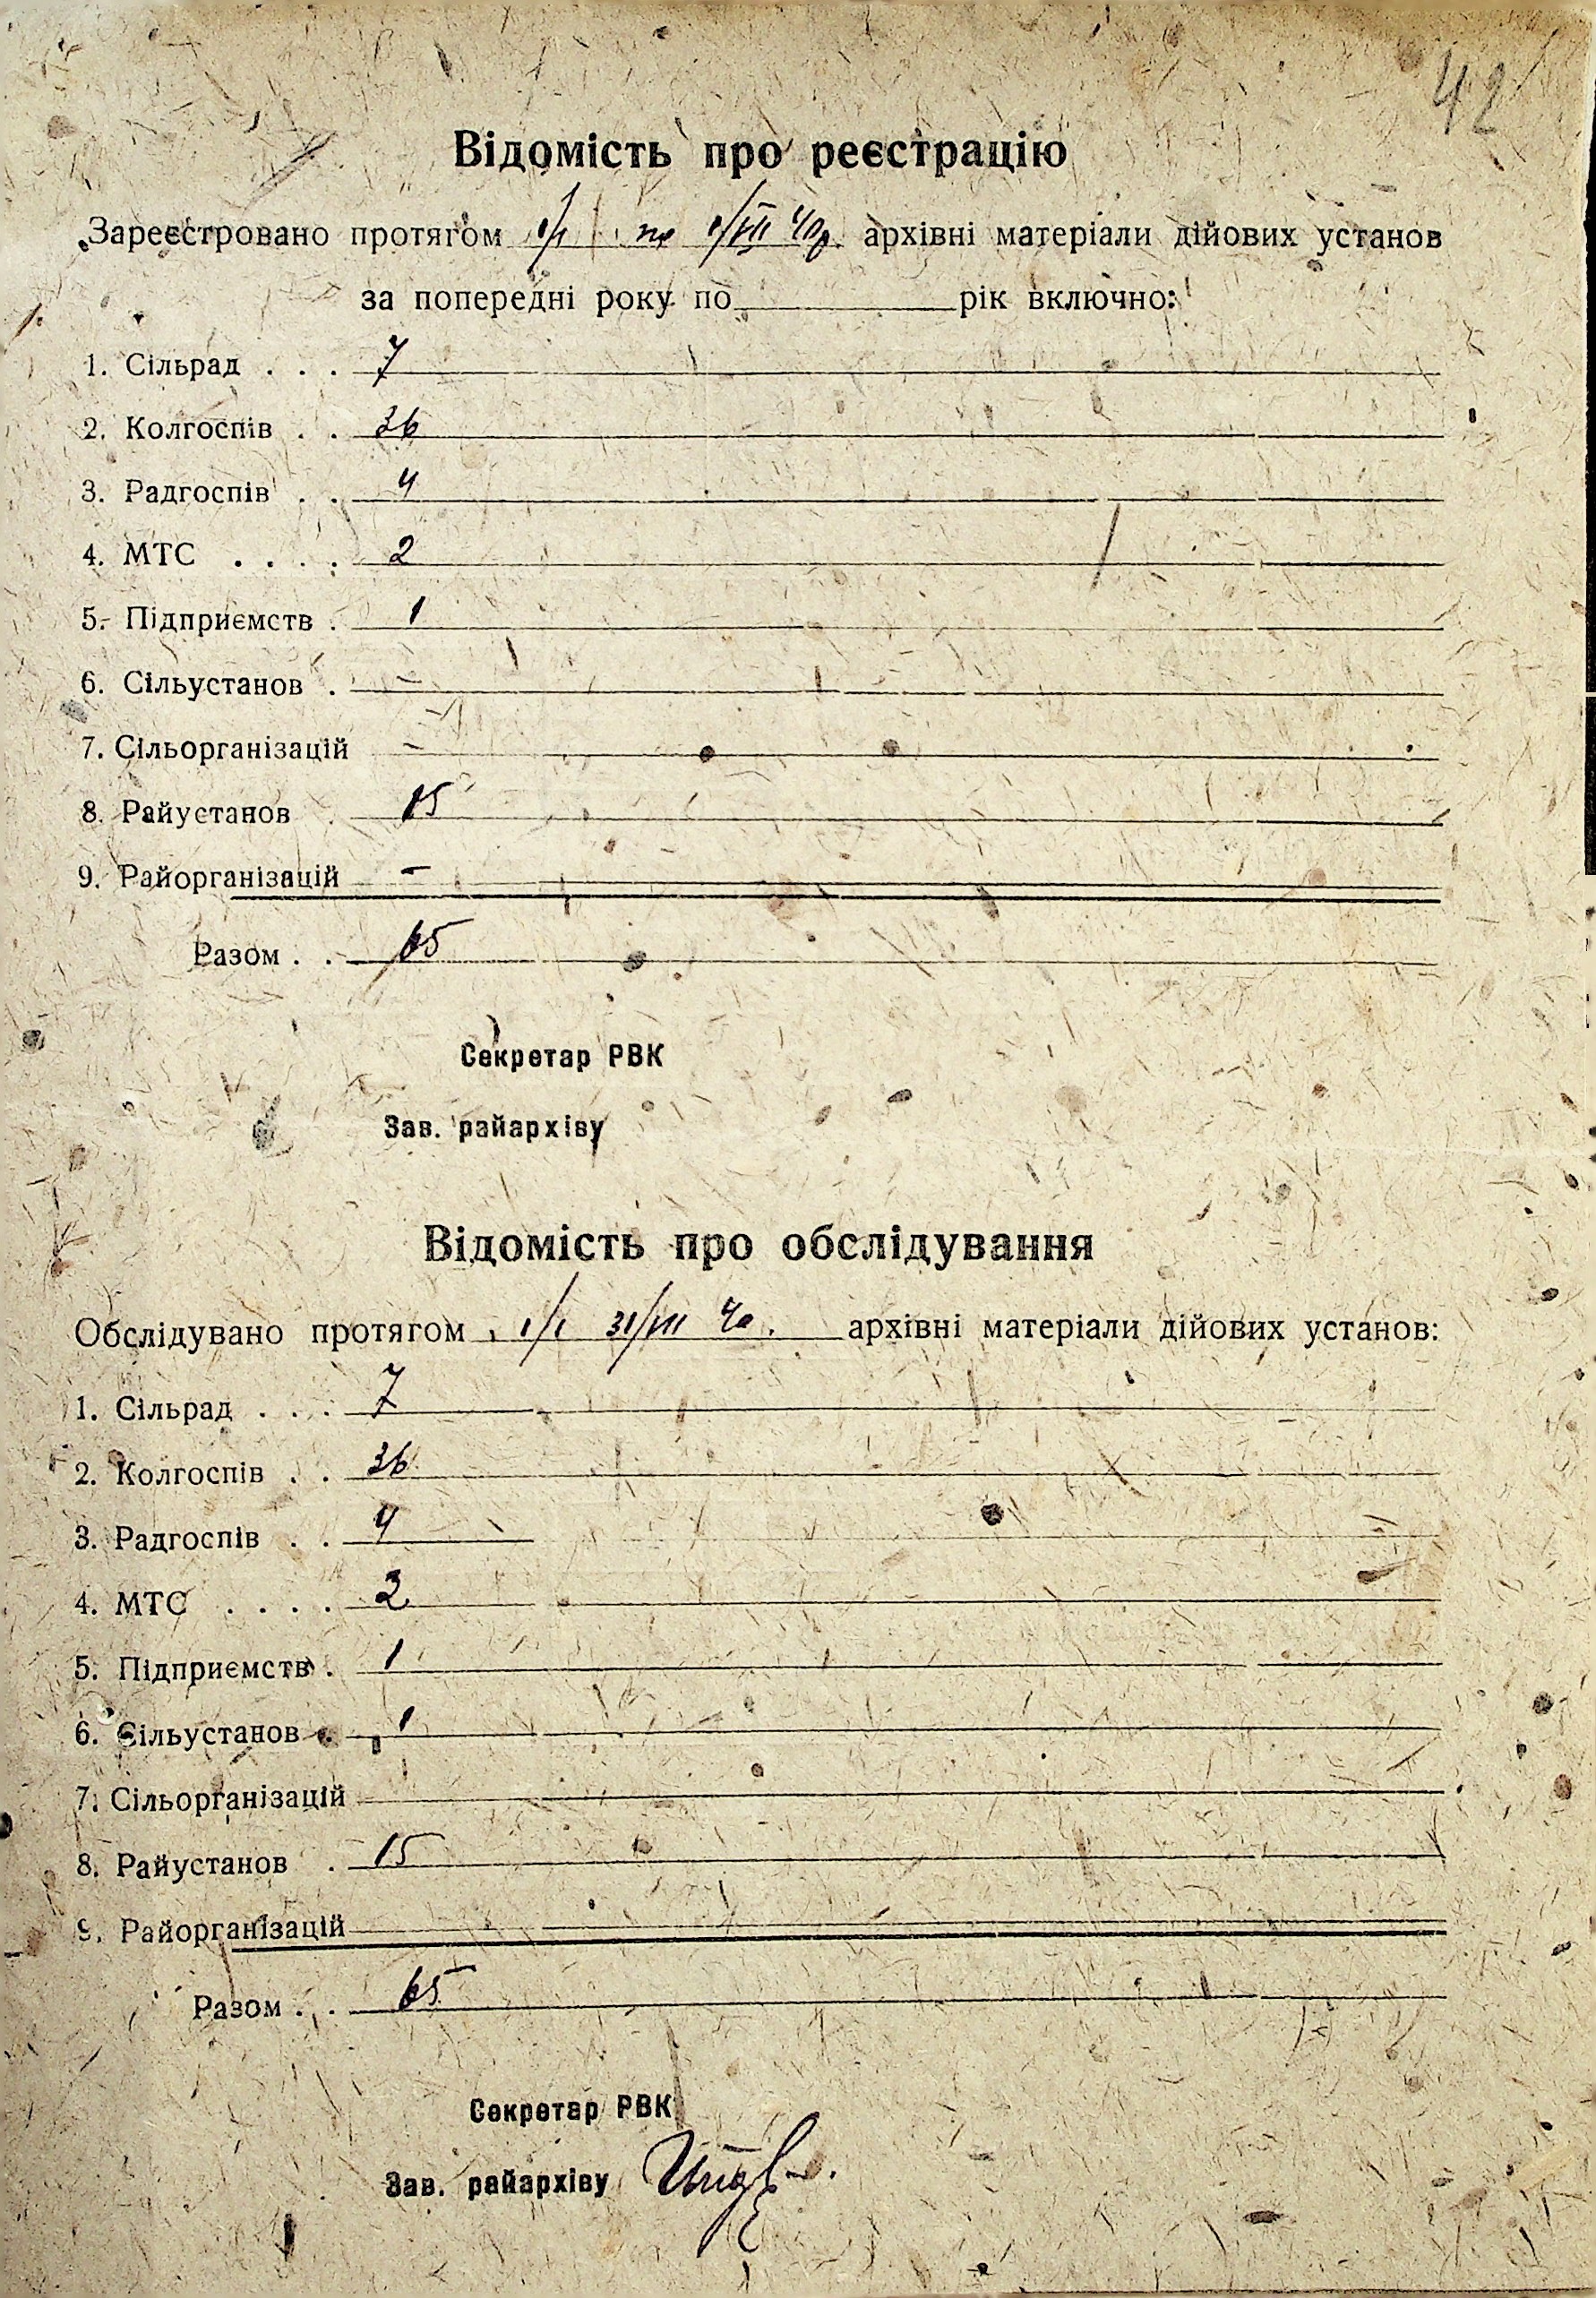 42
Відомість про реєстрацію
Зареєстровано протягом 1/I по 1/VII 40р. архівні матеріали дійових установ
за попередні року по рік включно:
1. Сільрад . . . 7
2. Колгоспів . . 36
3. Радгоспів . . 4
4. МТС . . . . 2
5. Підприємств . 1
6. Сільустанов . -
7. Сільорганізацій -
8. Райустанов . 15
9. Райорганізацій -
Разом . . 65
Секретар РВК
Зав. райархіву
Відомість про обслідування
Обслідувано протягом 1/I 31/VII 40. архівні матеріали дійових установ:
1. Сільрад . . . 7
2. Колгоспів . . 36
3. Радгоспів . . 4
4. МТС . . . . 2
5. Підприємств . 1
6. Сільустанов . 1
7. Сільорганізацій
8. Райустанов . 15
9. Райорганізацій
Разом . . 65
Секретар РВК
Зав. райархіву